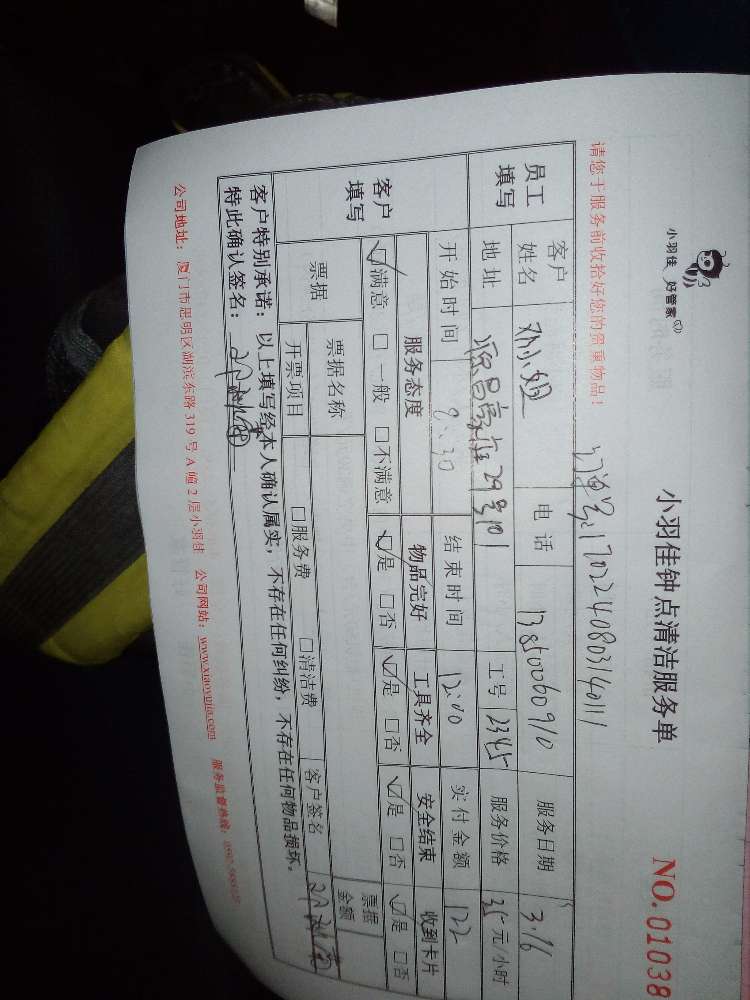 小羽佳 好管家
小羽佳钟点清洁服务单
NO. 01038
请您于服务前收拾好您的贵重物品!
订单号:1702240803140111
员工填写
客户姓名 邓小姐 电话 13850060910 服务日期 3.16
地址 源昌豪庭29号101 工号 12345 服务价格 35元/小时
开始时间 8:30 结束时间 12:00 实付金额 122
客户填写
服务态度 物品完好 工具齐全 安全结束 收到卡片
☑满意 □一般 □不满意 ☑是 □否 ☑是 □否 ☑是 □否 ☑是 □否
票据 票据名称 票据金额
开票项目 □服务费 □清洁费 客户签名
客户特别承诺:以上填写经本人确认属实,不存在任何纠纷,不存在任何物品损坏。
特此确认签名:
公司地址:厦门市思明区湖滨东路319号A幢2层小羽佳 公司网站:www.xiaoyujia.com 服务监督热线: